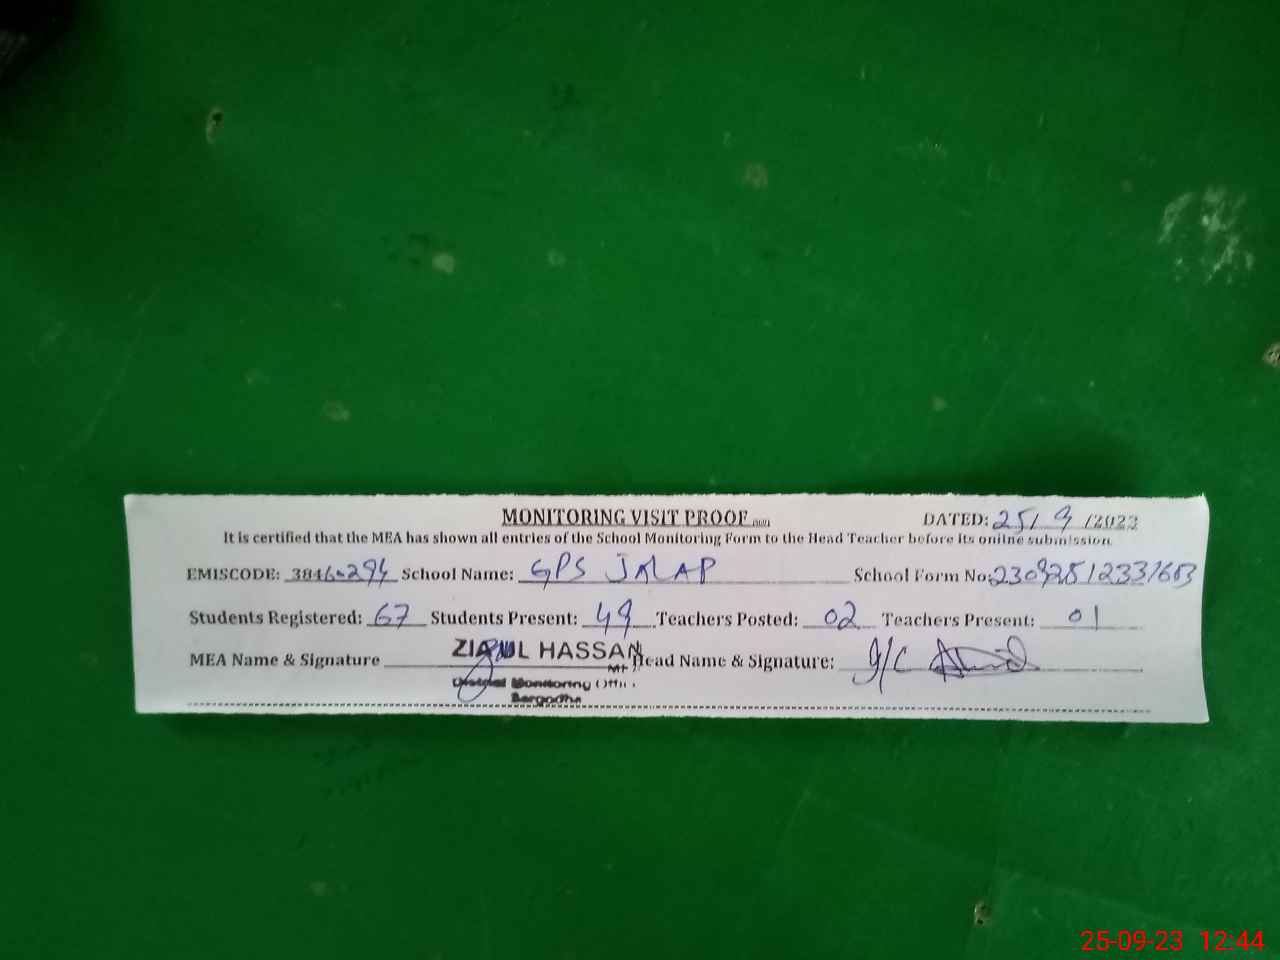 MONITORING VISIT PROOF
DATED: 25/ 9 /2023
It is certified that the MEA has shown all entries of the School Monitoring Form to the Head Teacher before its online submission.
EMISCODE: School Name: GPS JALAP School Form No:
Students Registered: 67 Students Present: 49 Teachers Posted: 02 Teachers Present: 01
MEA Name & Signature ZIA UL HASSAN Head Name & Signature: I/C
District Monitoring Office
Sargodha
25-09-23 12:44